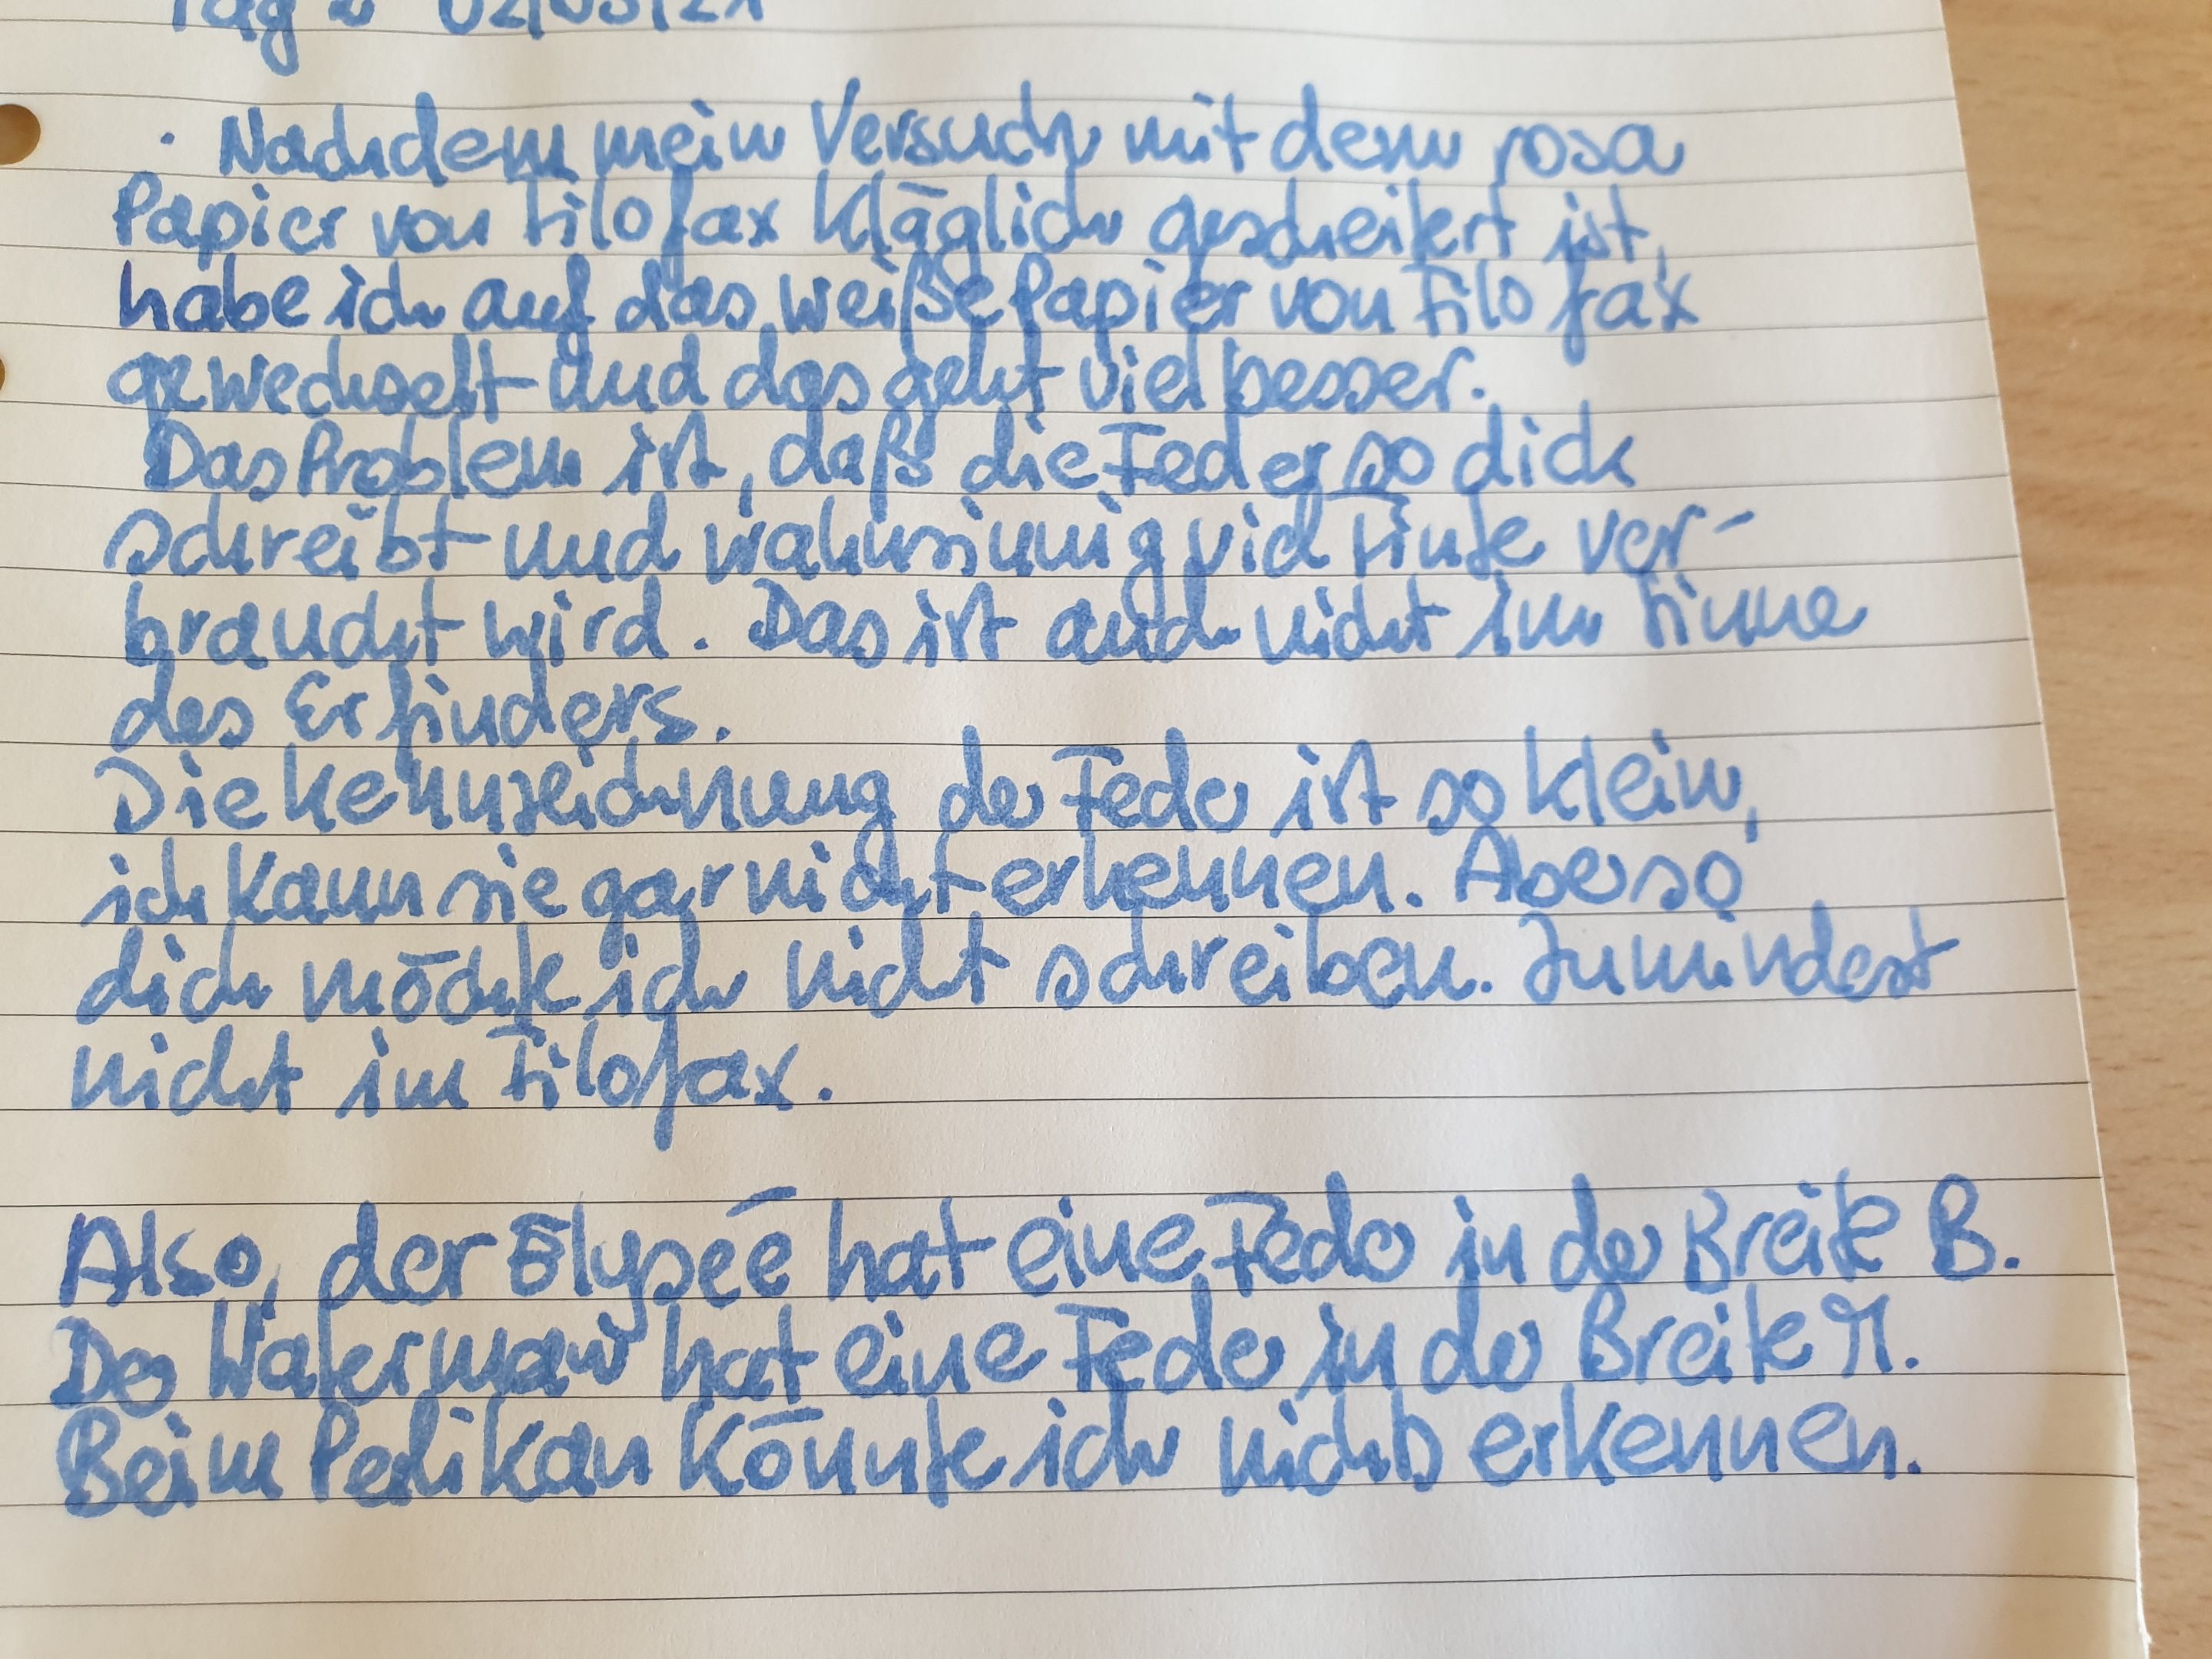 Tag 2 02/03/21
· Nachdem mein Versuch mit dem rosa
Papier von Filofax kläglich gescheitert ist,
habe ich auf das weiße Papier von Filofax
gewechselt und das geht viel besser.
Das Problem ist, daß die Feder so dick
schreibt und wahnsinnig viel Tinte ver-
braucht wird. Das ist auch nicht im Sinne
des Erfinders.
Die Kennzeichnung der Feder ist so klein,
ich kann sie gar nicht erkennen. Aber so
dick möchte ich nicht schreiben. Zumindest
nicht im Filofax.
Also, der Élysée hat eine Feder in der Breite B.
Der Waterman hat eine Feder in der Breite M.
Beim Pelikan könnte ich nichts erkennen.